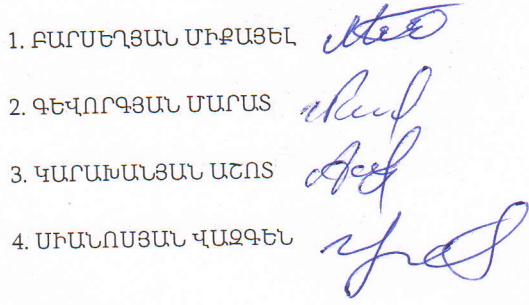 1. ԲԱՐՍԵՂՅԱՆ ՄԻՔԱՅԵԼ
2. ԳԵՎՈՐԳՅԱՆ ՄԱՐԱՏ
3. ԿԱՐԱԽԱՆՅԱՆ ԱՇՈՏ
4. ՍԻՄՈՆՈՍՅԱՆ ՎԱԶԳԵՆ